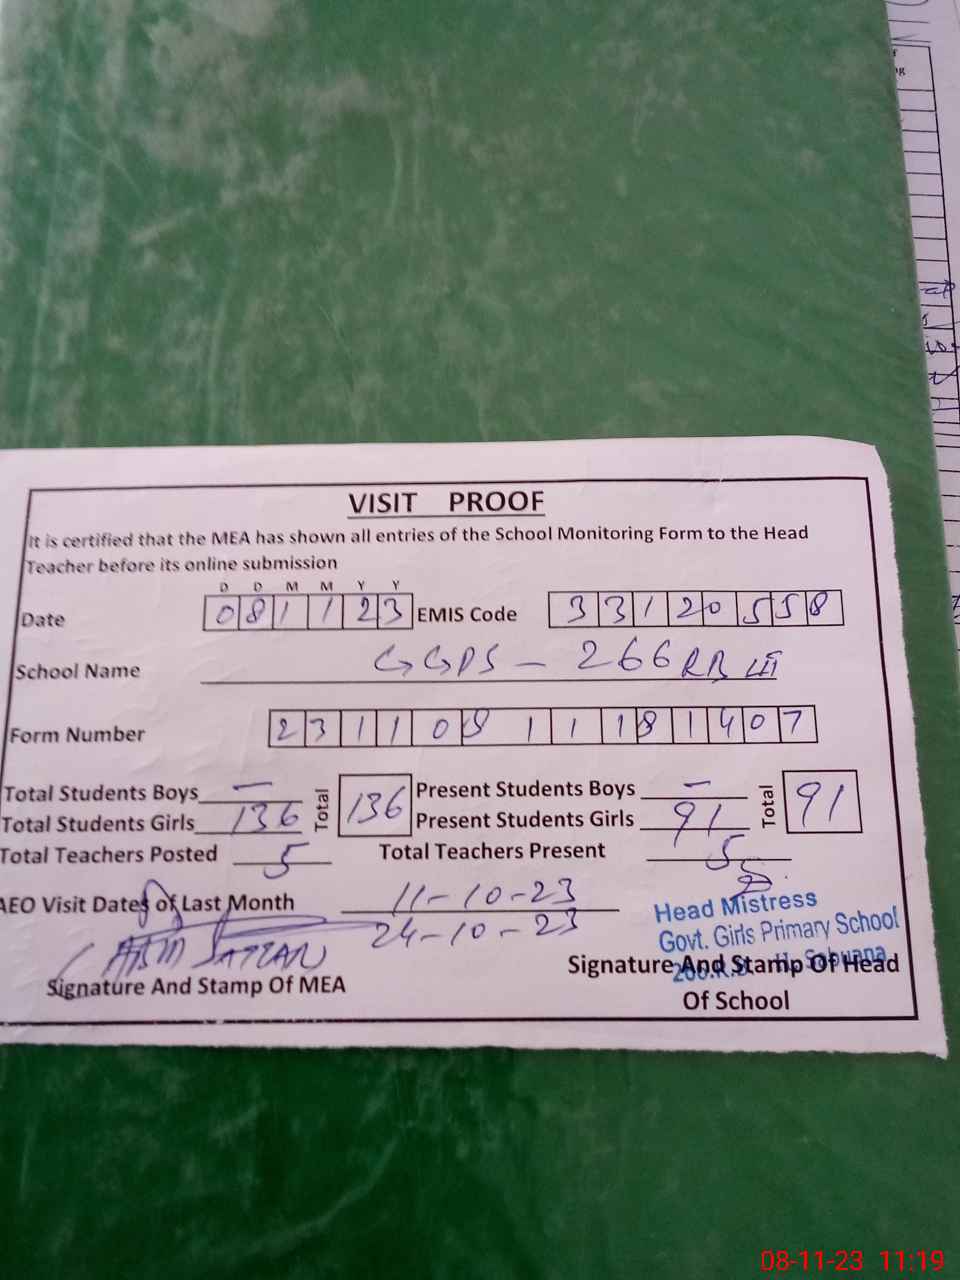 VISIT PROOF
It is certified that the MEA has shown all entries of the School Monitoring Form to the Head
Teacher before its online submission
D D M M Y Y
Date 081123 EMIS Code 33120558
School Name GGPS - 266 RB
Form Number 23110811181407
Total Students Boys - Total 136 Present Students Boys - Total 91
Total Students Girls 136 Present Students Girls 91
Total Teachers Posted 5 Total Teachers Present 5
AEO Visit Dates of Last Month 11-10-23
24-10-23
Head Mistress
Govt. Girls Primary School
Signature And Stamp Of MEA
Signature And Stamp Of Head
Of School
08-11-23 11:19